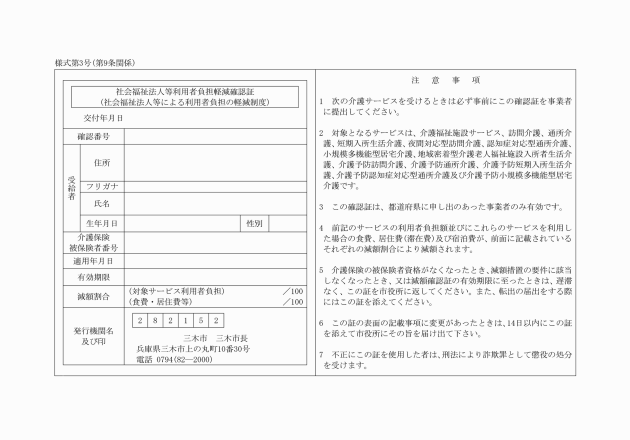 様式第3号(第9条関係)
社会福祉法人等利用者負担軽減確認証
(社会福祉法人等による利用者負担の軽減制度)
交付年月日
確認番号
受給者
住所
フリガナ
氏名
生年月日
性別
介護保険
被保険者番号
適用年月日
有効期限
減額割合
(対象サービス利用者負担) ／100
(食費・居住費等) ／100
発行機関名
及び印
2 8 2 1 5 2
三木市　三木市長
兵庫県三木市上の丸町10番30号
電話 0794(82―2000)
注　意　事　項
1　次の介護サービスを受けるときは必ず事前にこの確認証を事業者
に提出してください。
2　対象となるサービスは、介護福祉施設サービス、訪問介護、通所介
護、短期入所生活介護、夜間対応型訪問介護、認知症対応型通所介護、
小規模多機能型居宅介護、地域密着型介護老人福祉施設入所者生活介
護、介護予防訪問介護、介護予防通所介護、介護予防短期入所生活介
護、介護予防認知症対応型通所介護及び介護予防小規模多機能型居宅
介護です。
3　この確認証は、都道府県に申し出のあった事業者のみ有効です。
4　前記のサービスの利用者負担額並びにこれらのサービスを利用し
た場合の食費、居住費(滞在費)及び宿泊費が、前面に記載されている
それぞれの減額割合により減額されます。
5　介護保険の被保険者資格がなくなったとき、減額措置の要件に該当
しなくなったとき、又は減額確認証の有効期限に至ったときは、遅滞
なく、この証を市役所に返してください。また、転出の届出をする際
にはこの証を添えてください。
6　この証の表面の記載事項に変更があったときは、14日以内にこの証
を添えて市役所にその旨を届け出て下さい。
7　不正にこの証を使用した者は、刑法により詐欺罪として懲役の処分
を受けます。